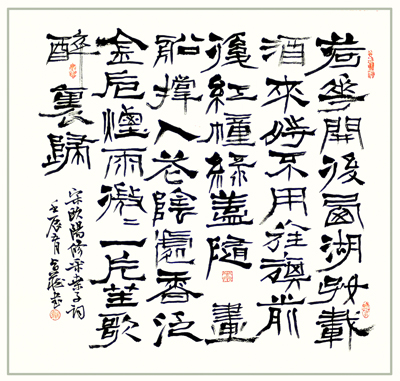 荷華開後西湖好載
酒來時不用旌旗前
後紅幢綠蓋隨畫
船撐入花陰處香泛
金卮煙雨微〻一片笙歌
醉裏歸
宋歐陽修采桑子詞
壬辰